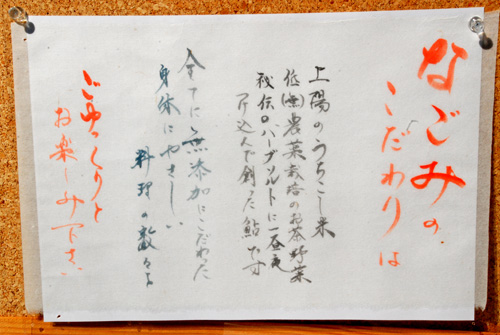 なごみの
こだわりは
上陽のうちごし米
低(無)農薬栽培のお茶野菜
秘伝のハーブソルトに一昼夜
つけ込んで創った鮎です
全てに無添加にこだわった
身体にやさしい
料理の数々を
ごゆっくりと
お楽しみ下さい